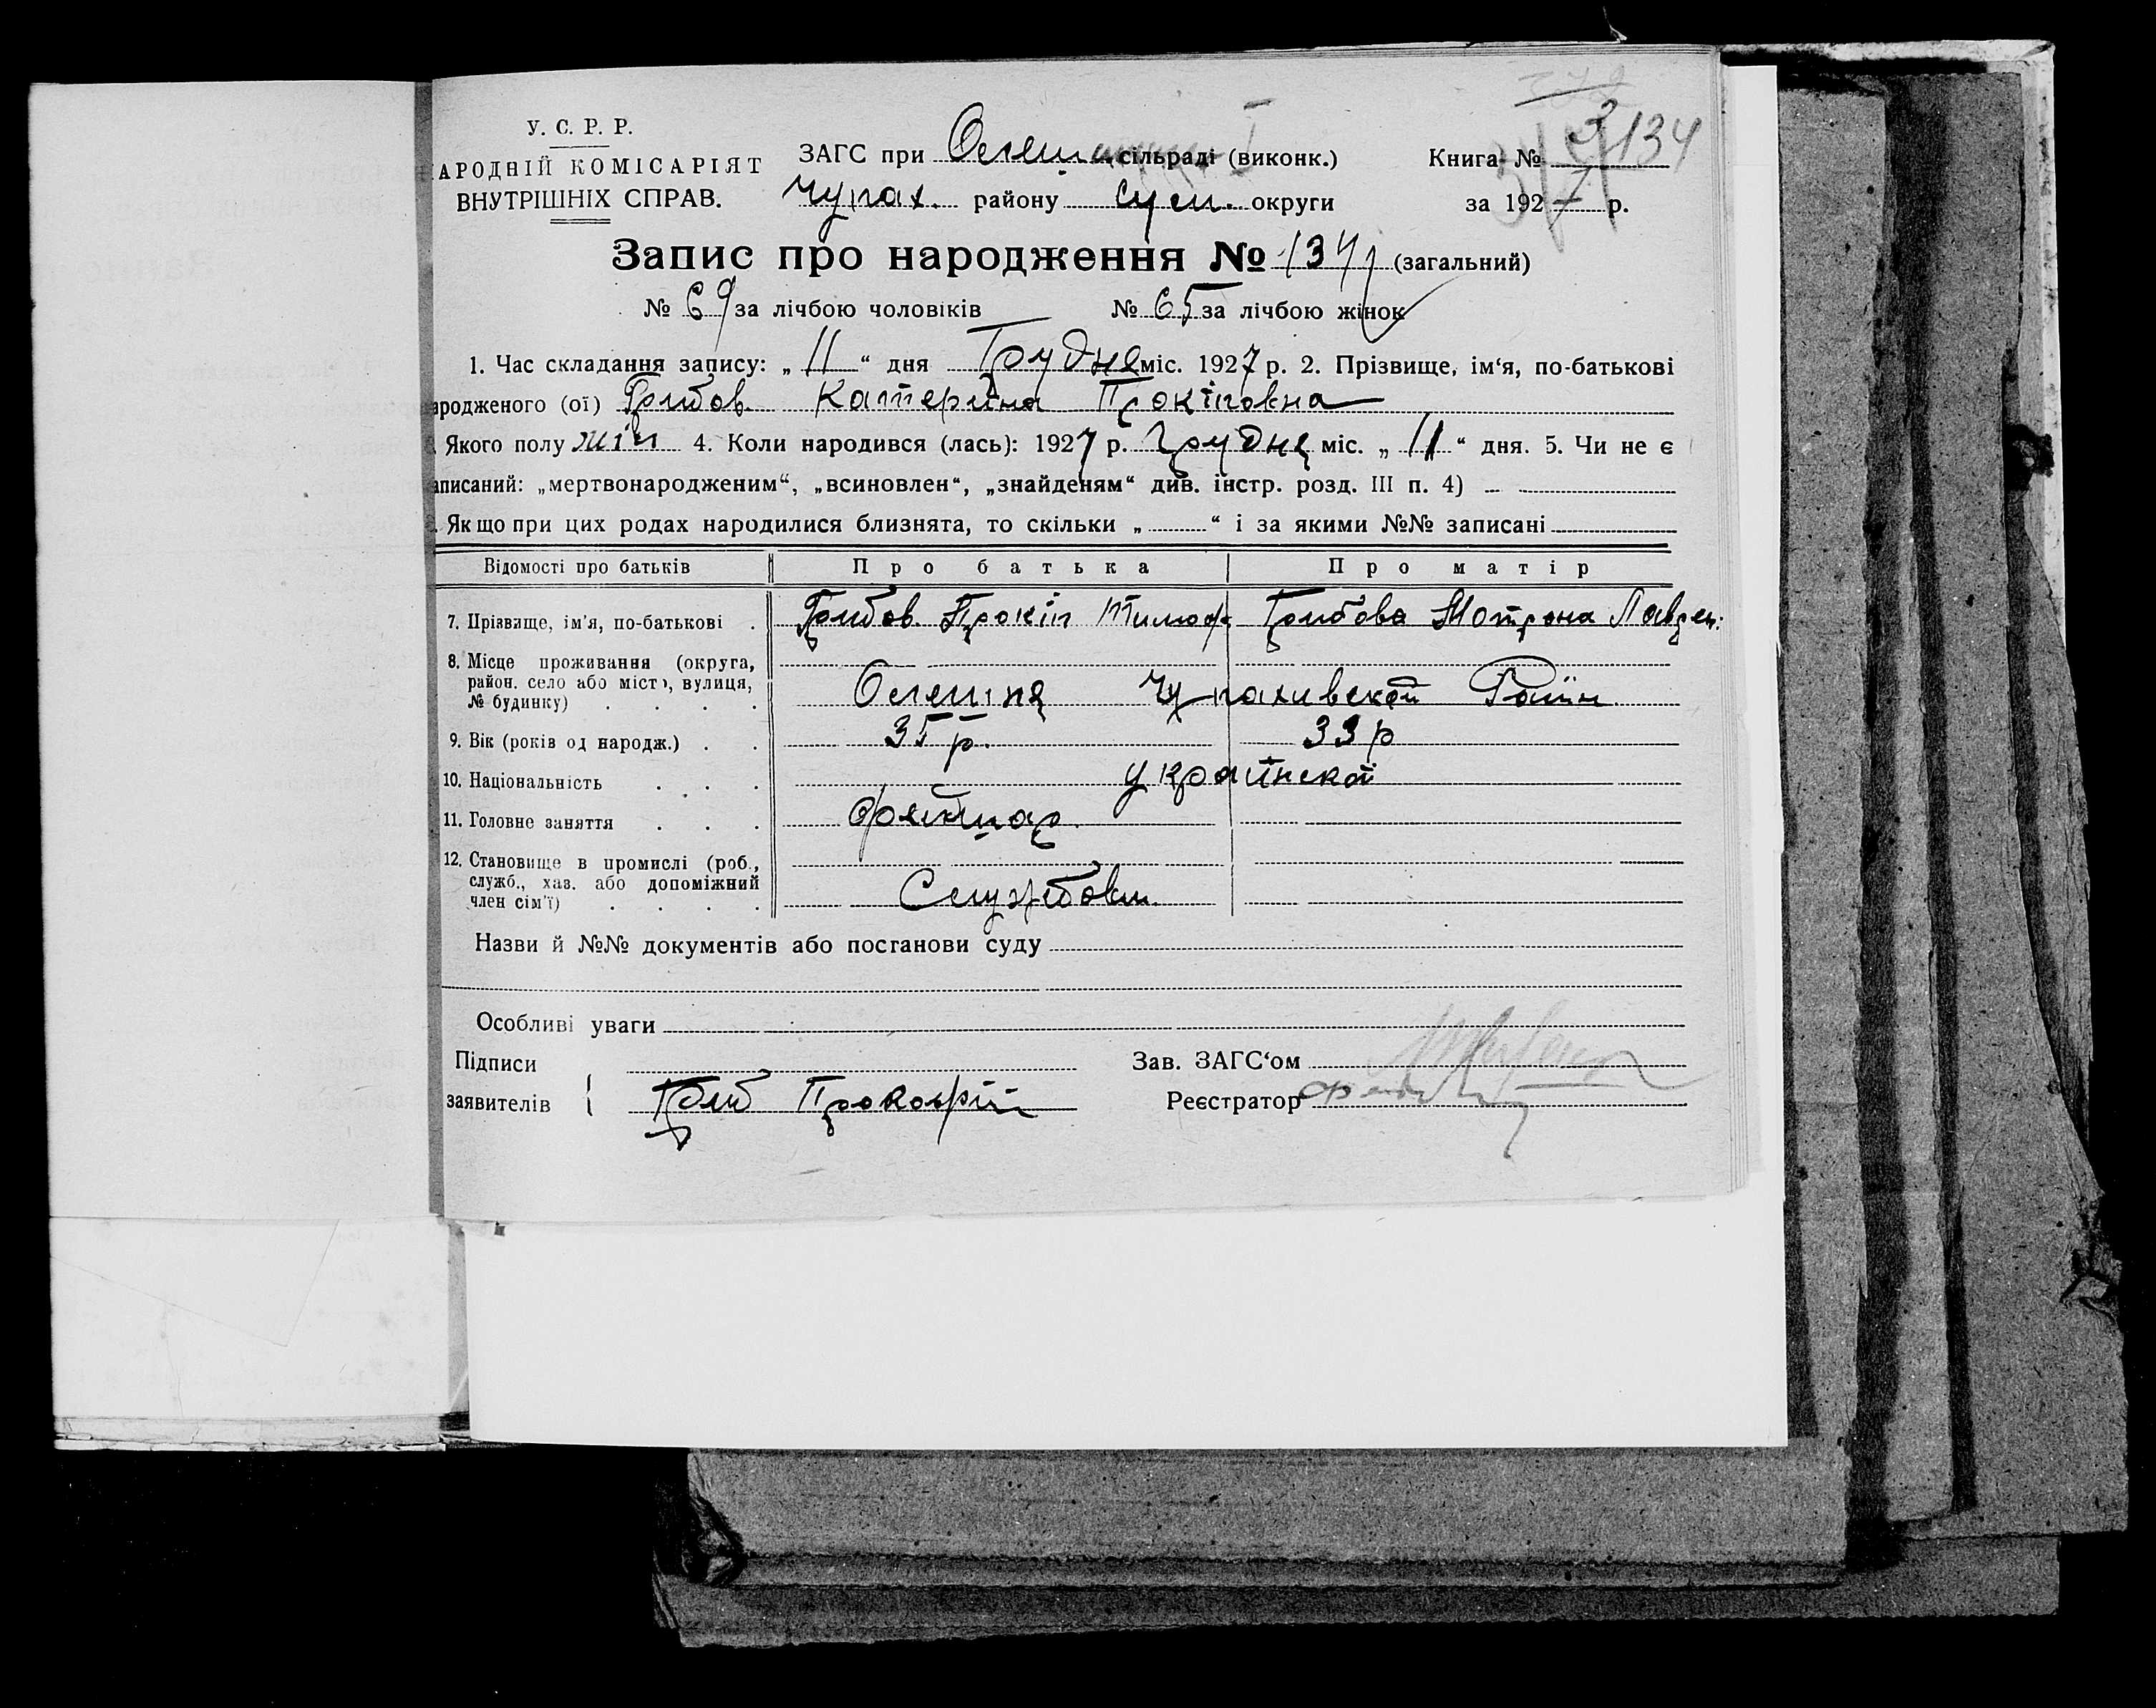 У. С. Р. Р.
НАРОДНІЙ КОМІСАРІЯТ
ВНУТРІШНІХ СПРАВ.
ЗАГС при Олеш сільраді (виконк.)
Чупах. району Сум. округи
Книга № 3 134
за 1927 р.
Запис про народження № 134 (загальний)
№ 69 за лічбою чоловіків № 65 за лічбою жінок
1. Час складання запису: „ 11 “ дня Грудня міс. 1927 р. 2. Прізвище, ім‘я, по-батькові
ародженого (ої) Грибов. Катерина Прокіповна
Якого полу жін 4. Коли народився (лась): 1927 р. Грудня міс. „ 11 “ дня. 5. Чи не є
аписаний: „мертвонародженим“, „всиновлен“, „знайденям“ див. інстр. розд. III п. 4) —
Якщо при цих родах народилися близнята, то скільки „ “ і за якими №№ записані
Відомості про батьків Про батька Про матір
7. Прізвище, ім’я, по-батькові . Грибов. Прокіп Тимоф. Грибова Мотрона Лаврен:
8. Місце проживання (округа,
район. село або місто, вулиця,
№ будинку) . . . . Олешня Чупахивской Район
9. Вік (років од народж.) . . 35 р. 33 р
10. Національність . . . . украінской
11. Головне заняття . . .
12. Становище в промислі (роб.,
служб., хаз. або допоміжний
член сім’ї) . . . . Службовы.
Назви й №№ документів або постанови суду
Особливі уваги
Підписи
заявителів { Гриб Прокофій
Зав. ЗАГС‘ом
Реєстратор